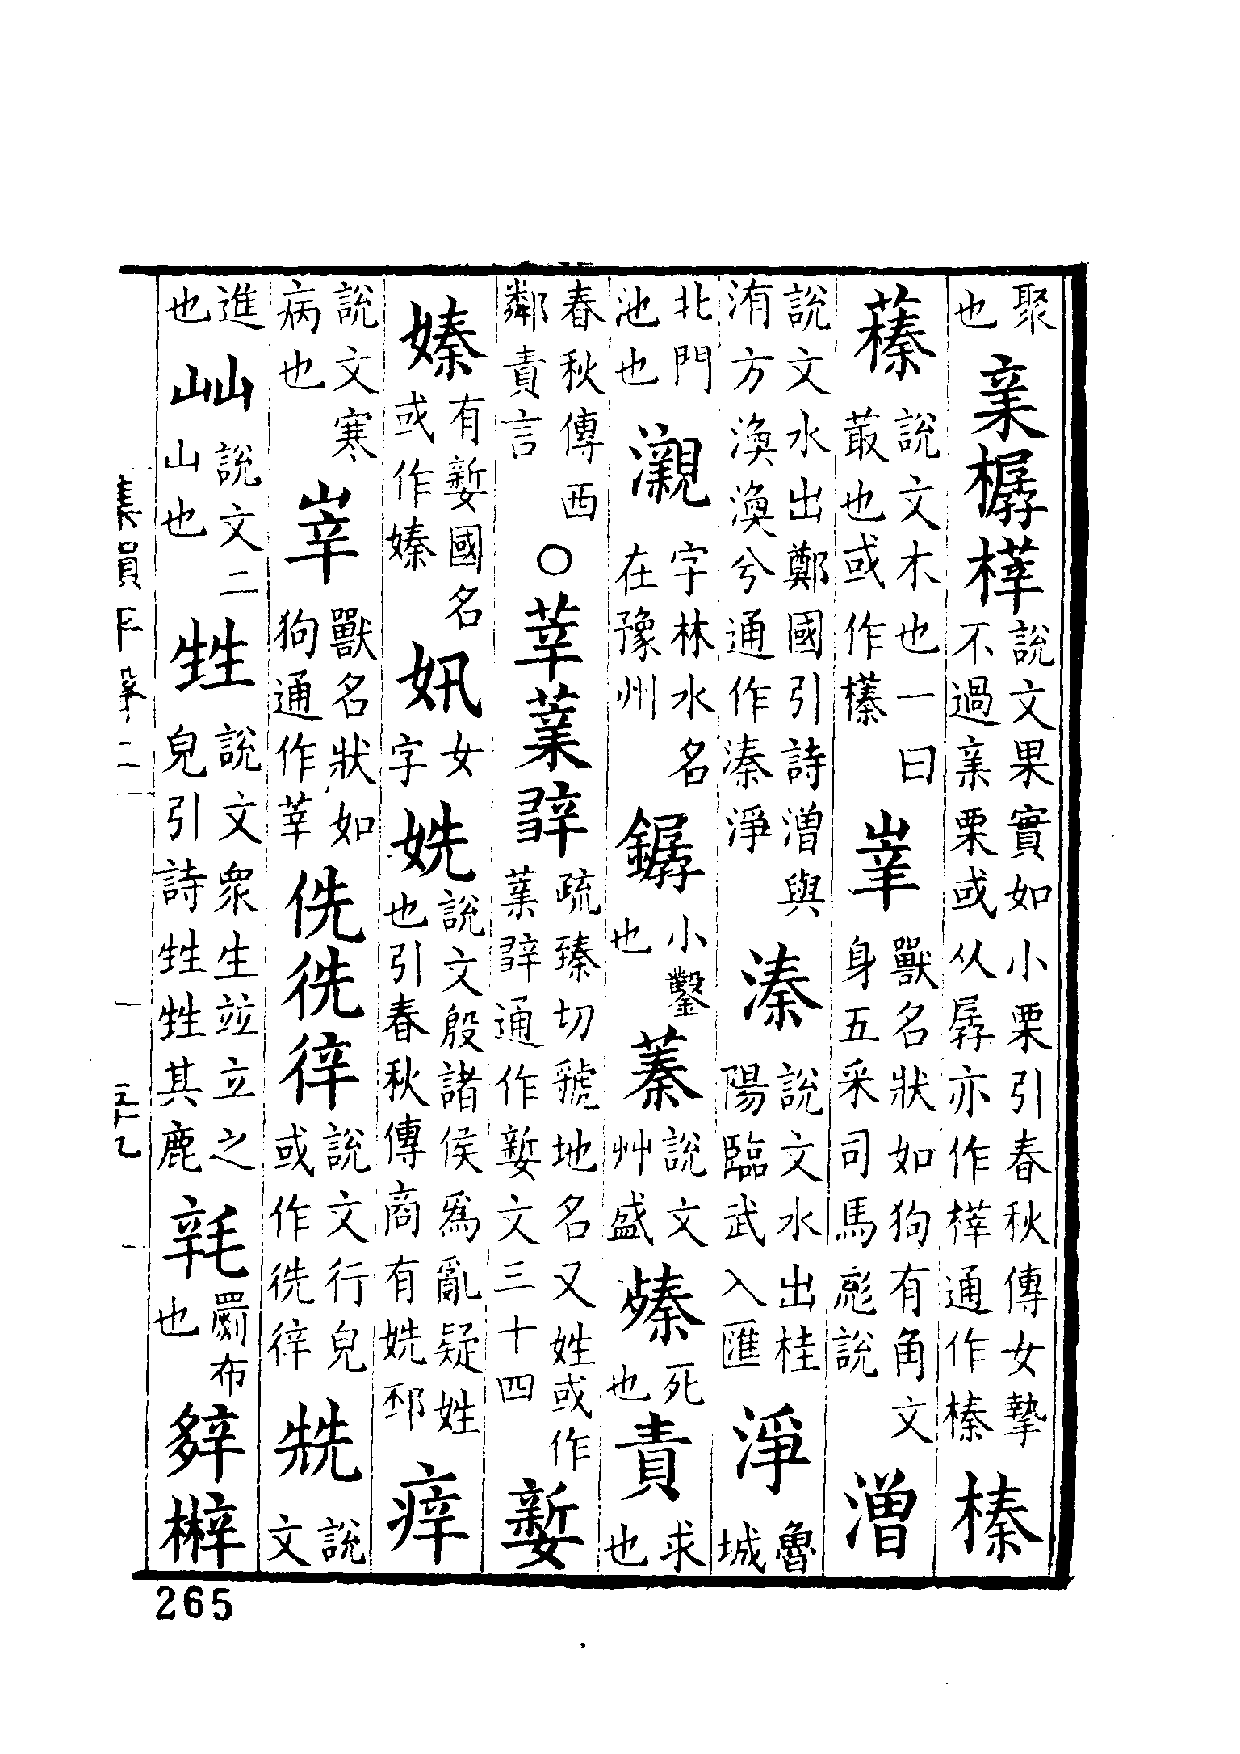 聚也亲樼榟說文果實如小栗引春秋傳女摯不過亲栗或从孱亦作榟通作榛榛
蓁說文木也一曰叢也或作榛峷獸名狀如狗有角文身五采司馬彪說潧
說文水出鄭國引詩潧與洧方渙渙兮通作溱淨溱說文水出桂陽臨武入匯淨魯城
北門池也瀙字林水名在豫州鏼小鑿也蓁說文艸盛㱈死也責求也
春秋傳西鄰責言○莘䔂辡疏臻切虢地名又姓或作䔂辡通作㜪文三十四㜪
嫀有㜪國名或作嫀㚨女字姺說文殷諸侯爲亂疑姓也引春秋傳商有姺邳痒
說文寒病也峷獸名狀如狗通作莘侁㣬㣪說文行皃或作㣬㣪兟說文
進也屾說文二山也甡說文眾生竝立之皃引詩甡甡其鹿㲎罽布也㚔㯕
集韻平聲二
五十九
265